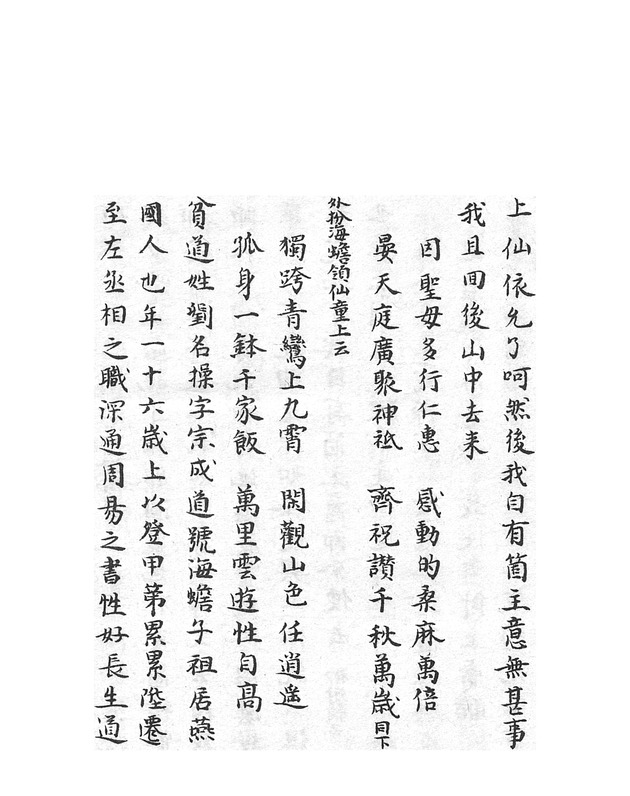 上仙依允了呵然後我自有箇主意無甚事
我且回後山中去来
因聖母多行仁惠　感動的桑麻萬倍
晏天庭廣聚神祇　齊祝讚千秋萬歲同下
外扮海蟾領仙童上云
獨跨青鸞上九霄　閑觀山色任逍遥
孤身一鉢千家飯　萬里雲遊性自高
貧道姓劉名操字宗成道號海蟾子祖居燕
國人也年一十六歲上以登甲第累累陞遷
至左丞相之職深通周易之書性好長生道